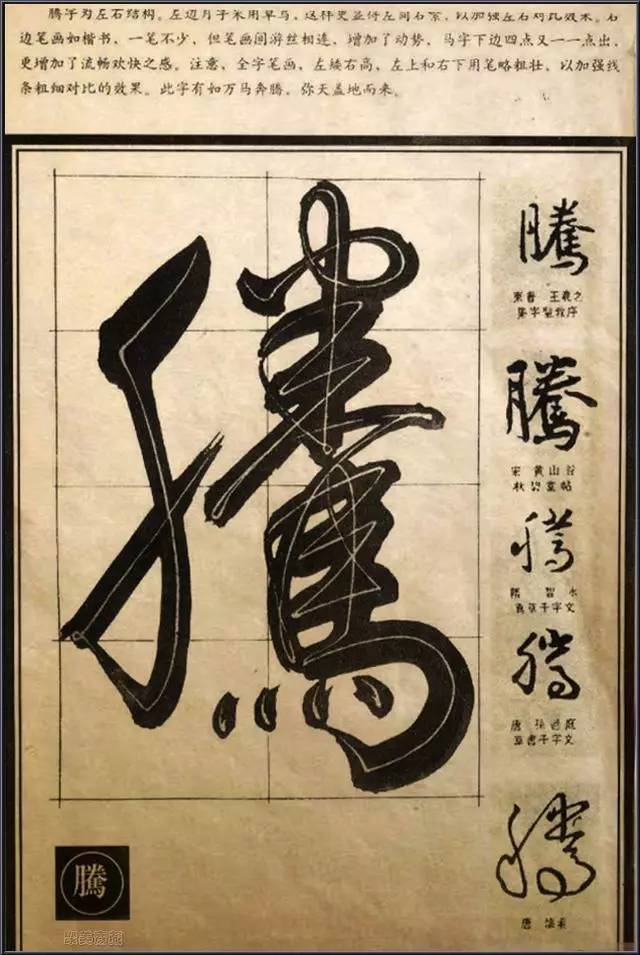 腾字为左右结构。左边月字采用草写，这样更显得左简右繁，以加强左右对比效果。右
边笔画如楷书、一笔不少，但笔画间游丝相连，增加了动势，马字下边四点又一一点出，
更增加了流畅欢快之感。注意，全字笔画，左矮右高、左上和右下用笔略粗壮、以加强线
条粗细对比的效果。此字有如万马奔腾，弥天盖地而来。
騰
騰
东晋 王羲之
集字圣教序
騰
宋 黄山谷
秋碧堂帖
騰
隋 智永
真草千字文
騰
唐 孙过庭
草书千字文
騰
唐 怀素
騰